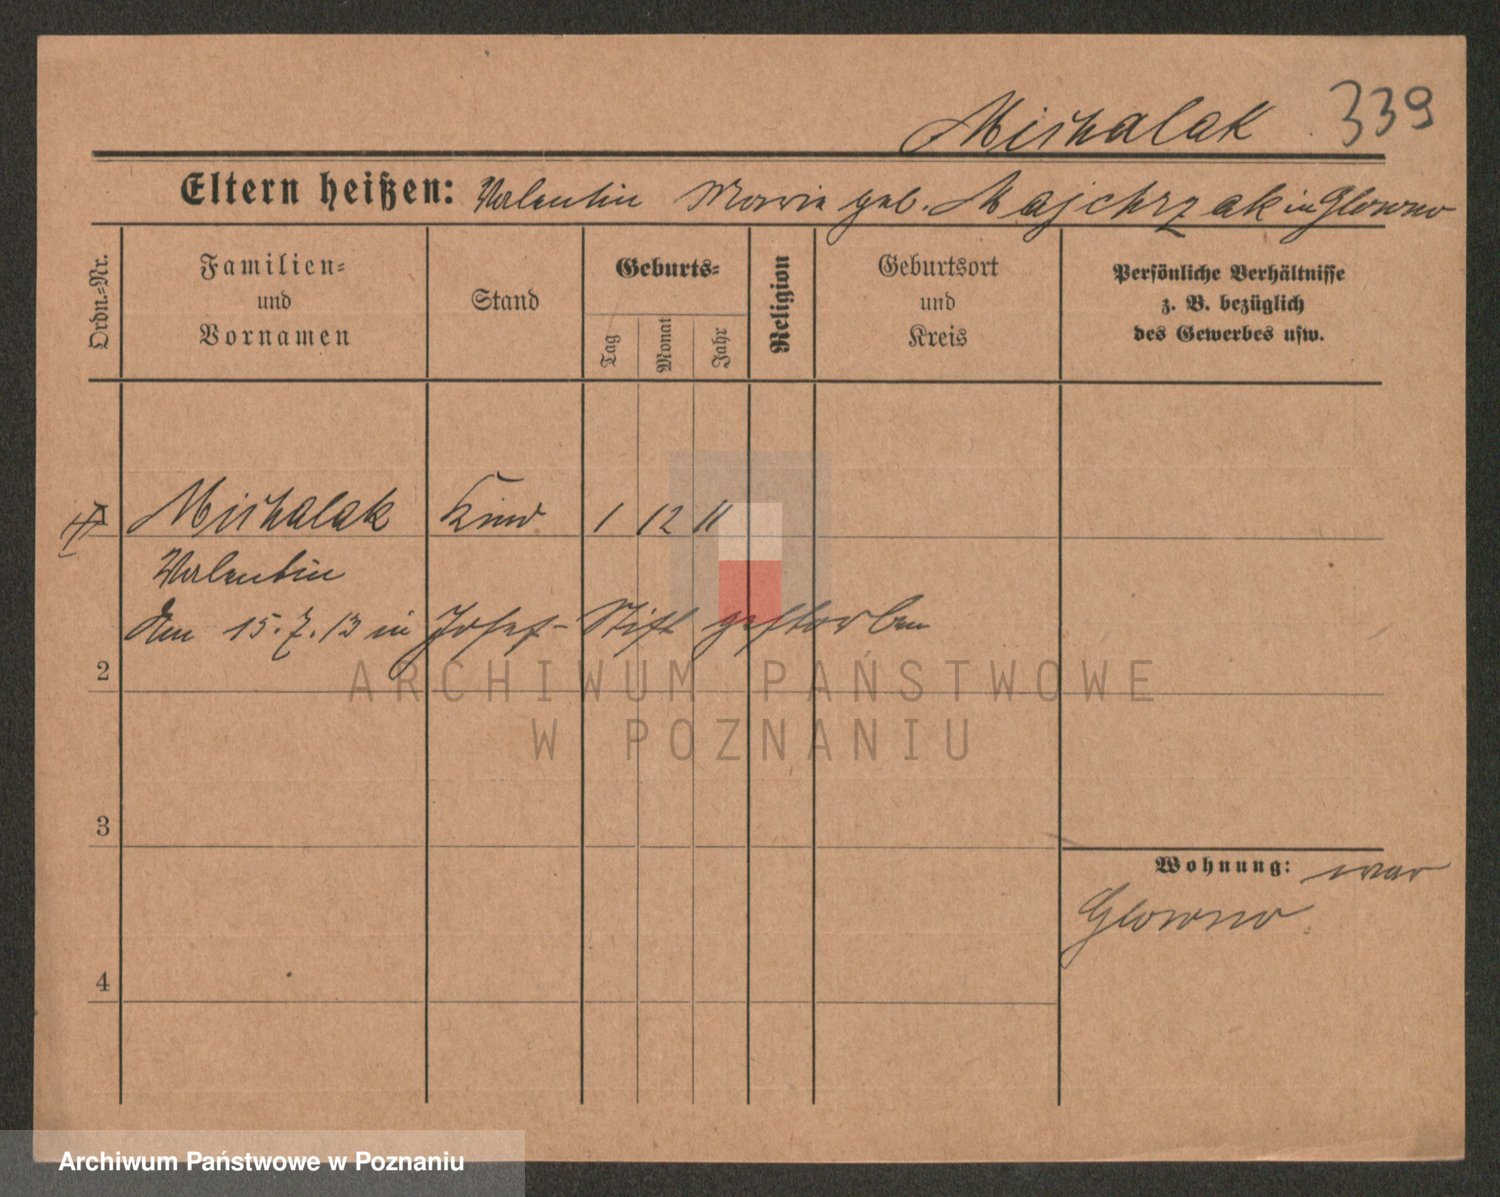 Michalak 339
Eltern heißen: Valentin Marie geb. Majchrzak in Glowno
Ordn.=Nr.
Familien=
und
Vornamen
Stand
Geburts=
Tag
Monat
Jahr
Religion
Geburtsort
und
Kreis
Persönliche Verhältnisse
z. B. bezüglich
des Gewerbes usw.
Michalak Kind 1 12 11
Valentin
Am 15.7.13 in Josef-Stift gestorben
2
ARCHIWUM PAŃSTWOWE
W POZNANIU
3
Wohnung: war
Glowno
4
Archiwum Państwowe w Poznaniu